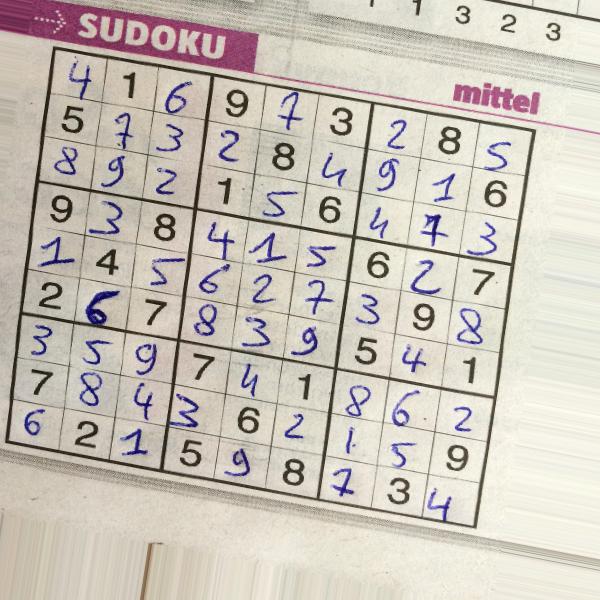 1 3 2 3
SUDOKU
mittel
4 1 6 9 7 3 2 8 5
5 7 3 2 8 4 9 1 6
8 9 2 1 5 6 4 7 3
9 3 8 4 1 5 6 2 7
1 4 5 6 2 7 3 9 8
2 6 7 8 3 9 5 4 1
3 5 9 7 4 1 8 6 2
7 8 4 3 6 2 1 5 9
6 2 1 5 9 8 7 3 4